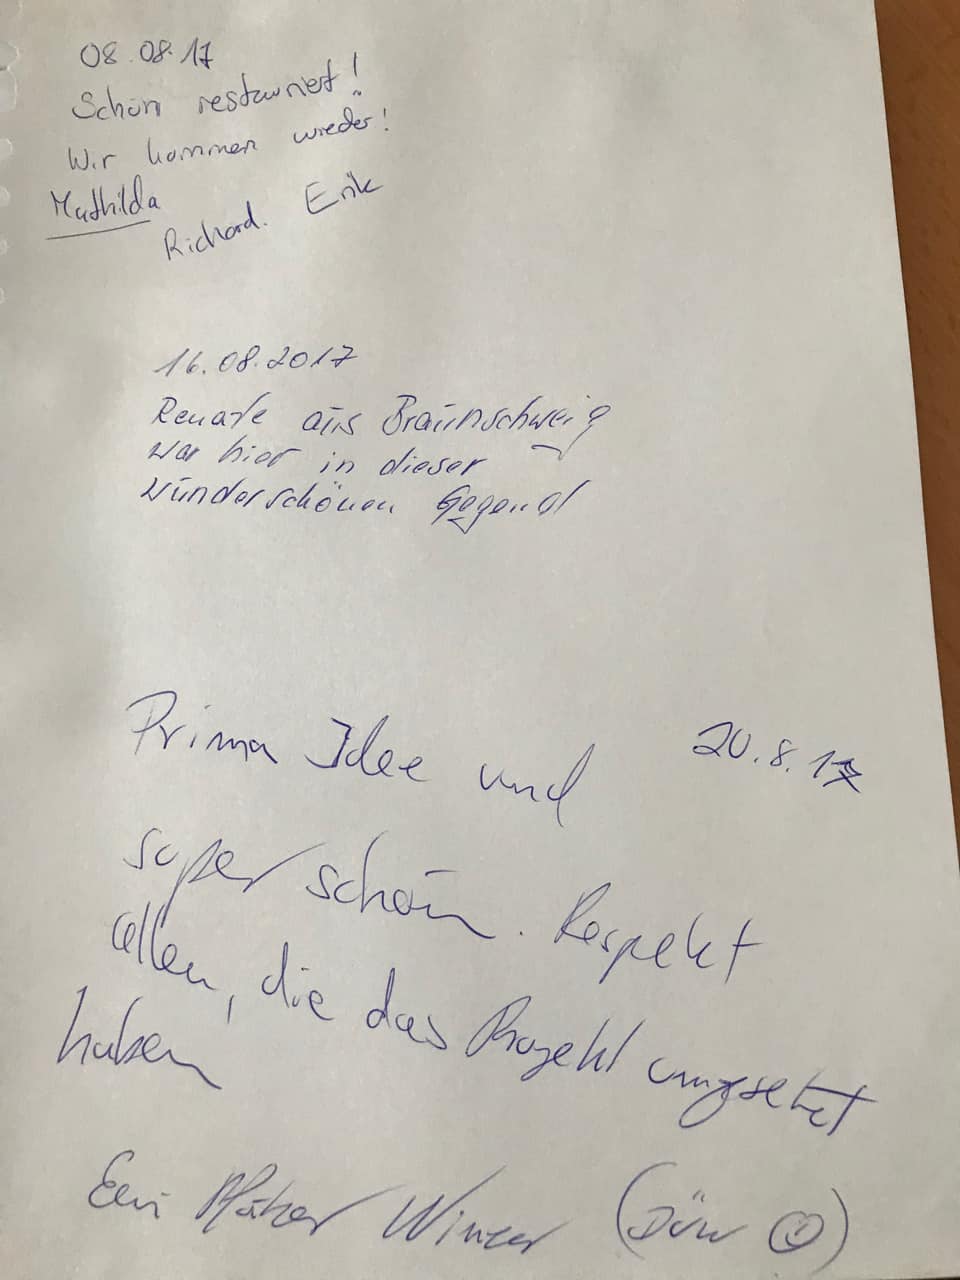 08.08.17
Schön restauriert!
Wir kommen wieder!
Mathilda
Richard. Erik
16.08.2017
Renate aus Braunschweig
war hier in dieser
wunderschönen Gegend
20.8.17
Prima Idee und
super schön. Respekt
allen, die das Projekt umgesetzt
haben
Ein Pfälzer Winzer